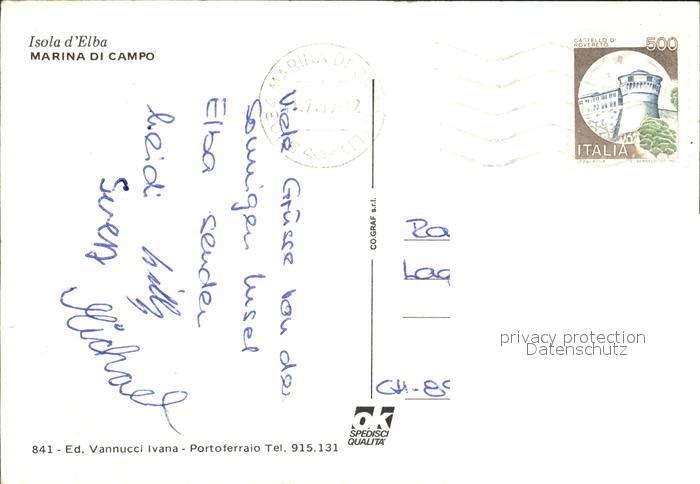 Isola d'Elba
MARINA DI CAMPO
CASTELLO DI
ROVERETO
500
ITALIA
MARINA DI
Viele Grüsse von der
sonnigen Insel
Elba senden
Heidi Willy
Sven
Michael
CO.GRAF s.r.l.
Ra
Lag
CH-89
privacy protection
Datenschutz
ok
SPEDISCI
QUALITA'
841 - Ed. Vannucci Ivana - Portoferraio Tel. 915.131